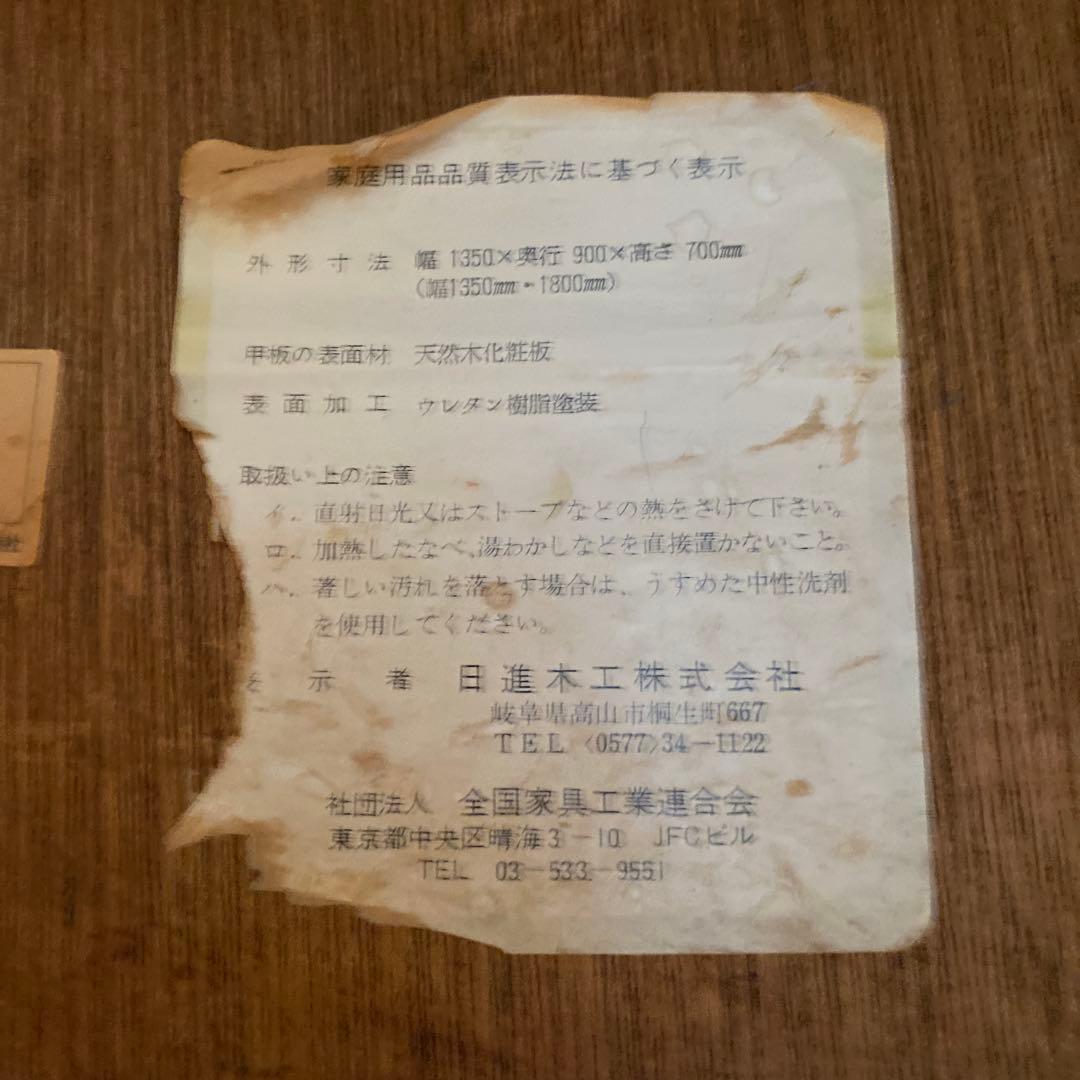 家庭用品品質表示法に基づく表示
外形寸法 幅 1350×奥行 900×高さ 700mm
(幅1350mm・1800mm)
甲板の表面材 天然木化粧板
表面加工 ウレタン樹脂塗装
取扱い上の注意
イ. 直射日光又はストーブなどの熱をさけて下さい。
ロ. 加熱したなべ、湯わかしなどを直接置かないこと。
ハ. 著しい汚れを落とす場合は、うすめた中性洗剤
を使用してください。
表示者 日進木工株式会社
岐阜県高山市桐生町667
TEL (0577)34-1122
社団法人 全国家具工業連合会
東京都中央区晴海3-10 JFCビル
TEL 03-533-9551